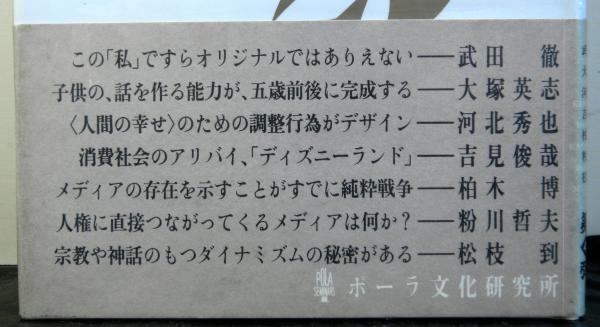 この「私」ですらオリジナルではありえない――武田 徹
子供の、話を作る能力が、五歳前後に完成する――大塚英志
〈人間の幸せ〉のための調整行為がデザイン――河北秀也
消費社会のアリバイ、「ディズニーランド」――吉見俊哉
メディアの存在を示すことがすでに純粋戦争――柏木 博
人権に直接つながってくるメディアは何か?――粉川哲夫
宗教や神話のもつダイナミズムの秘密がある――松枝 到
PŌLA
SEMINARS
ポーラ文化研究所